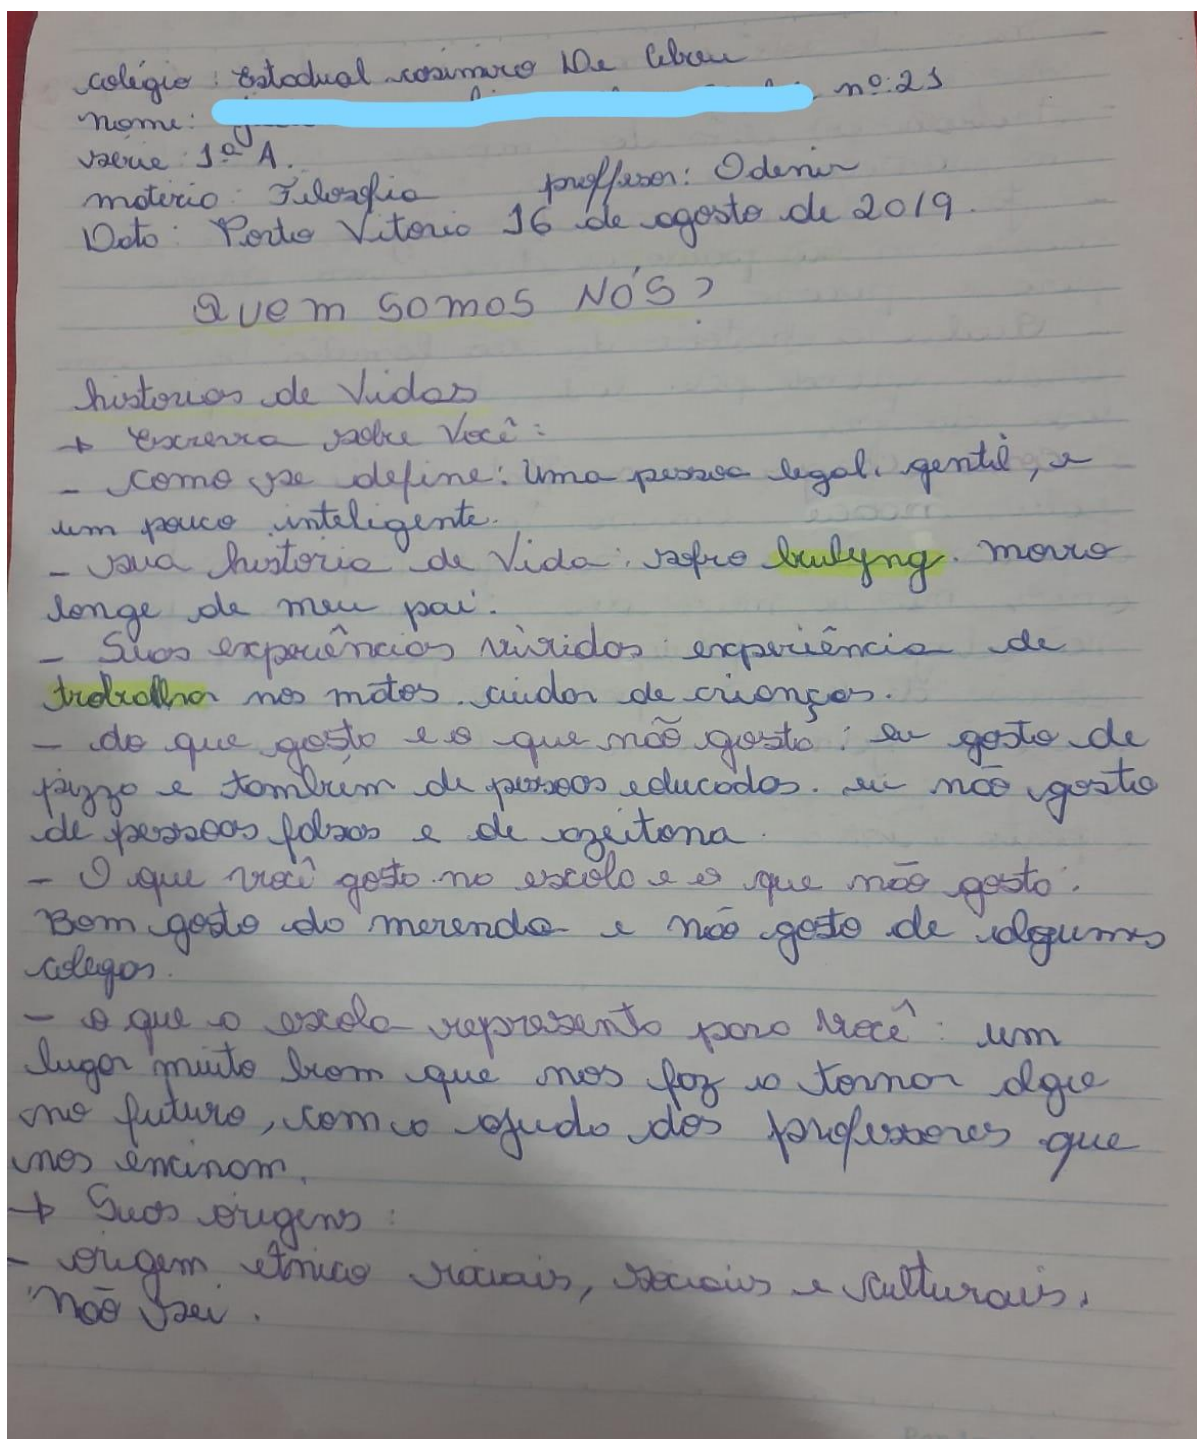 colégio: Estadual casimiro De Abreu
nome: nº: 21
serie: 1ª A.
materia: Filosofia proffesor: Odenir
Data: Porto Vitoria 16 de agosto de 2019.
QUEM SOMOS NÓS?
historias de Vidas
→ Escreva sobre Você:
- como se define: Uma pessoa legal, gentil, e
um pouco inteligente.
- sua historia de Vida: sofro bulyng. morro
longe de meu pai.
- Suas experiências vividas: experiência de
trabalhar nos matos. cuidar de crianças.
- do que gosta e o que não gosta: eu gosto de
pizza e também de pessoas educadas. eu não gosto
de pessoas falsas e de azeitona.
- O que você gosta na escola e o que não gosta:
Bom gosto da merenda e não gosto de algumes
colegas.
- o que a escola representa para você: um
lugar muito bom que nos faz a tornar algue
no futuro, com a ajuda dos professores que
nos encinam.
→ Suas origens:
- origem étnico raciais, sociais e culturais.
Não sei.